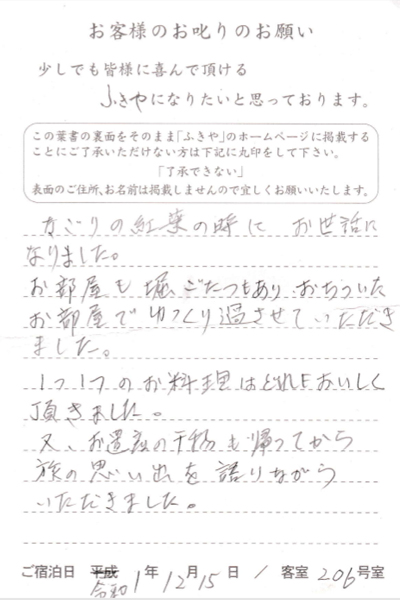 お客様のお叱りのお願い
少しでも皆様に喜んで頂ける
ふきやになりたいと思っております。
この葉書の裏面をそのまま「ふきや」のホームページに掲載する
ことにご了承いただけない方は下記に丸印をして下さい。
「了承できない」
表面のご住所、お名前は掲載しませんので宜しくお願いいたします。
なごりの紅葉の時に お世話に
なりました。
お部屋も 堀ごたつもあり おちついた
お部屋で ゆっくり過させていただき
ました。
1つ1つのお料理はどれもおいしく
頂きました。
又、お土産の干物も帰ってから
旅の思い出を語りながら
いただきました。
ご宿泊日 平成 令和 1年 12月 15日 / 客室 206号室